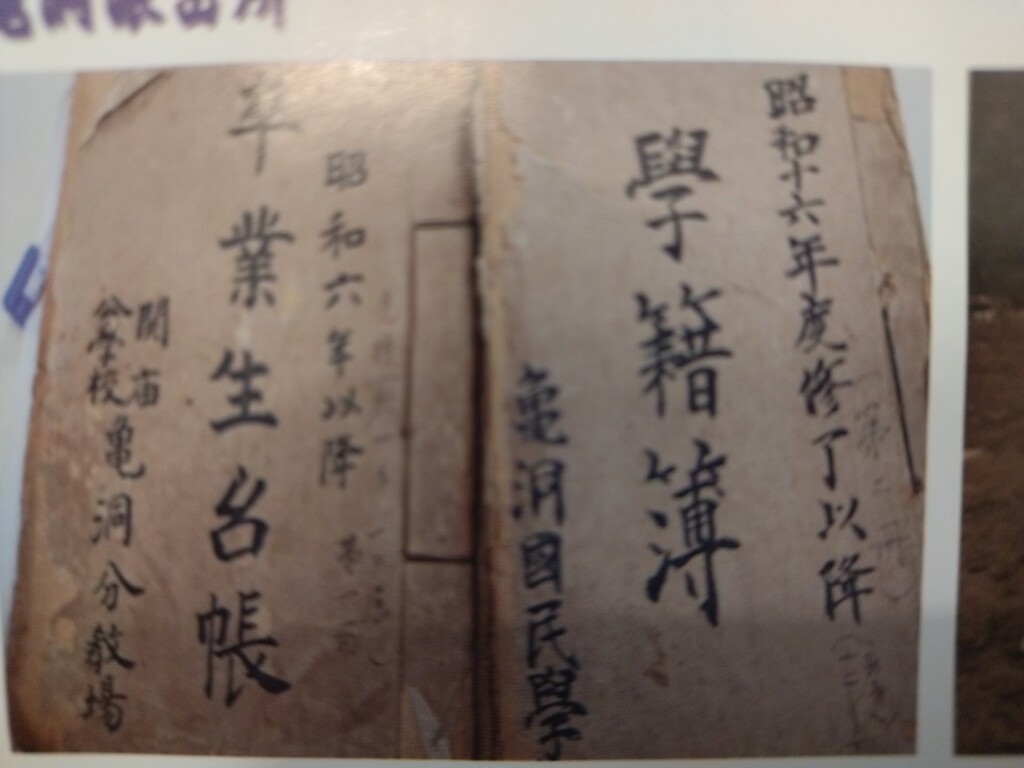 昭和十六年度修了以降
學籍簿
亀洞國民學
昭和六年以降
卒業生名帳
関庙
公學校
亀洞分教場